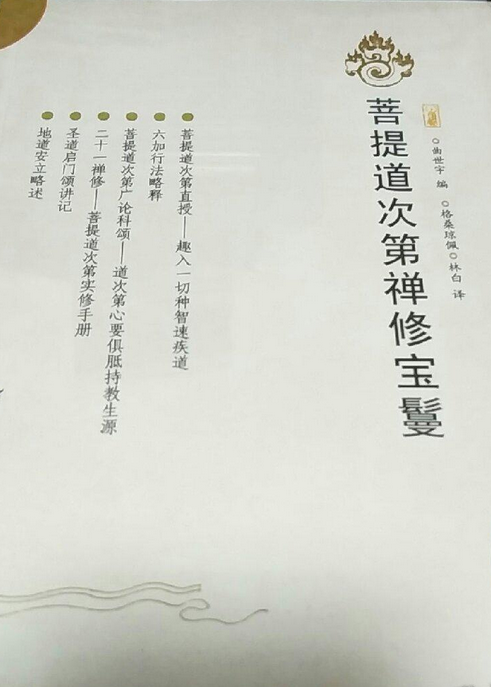 菩提道次第禅修宝鬘
曲世宇 编 格桑琼佩 林白 译
菩提道次第直授——趣入一切种智速疾道
六加行法略释
菩提道次第广论科颂——道次第心要俱胝持教生源
二十一禅修——菩提道次第实修手册
圣道启门颂讲记
地道安立略述